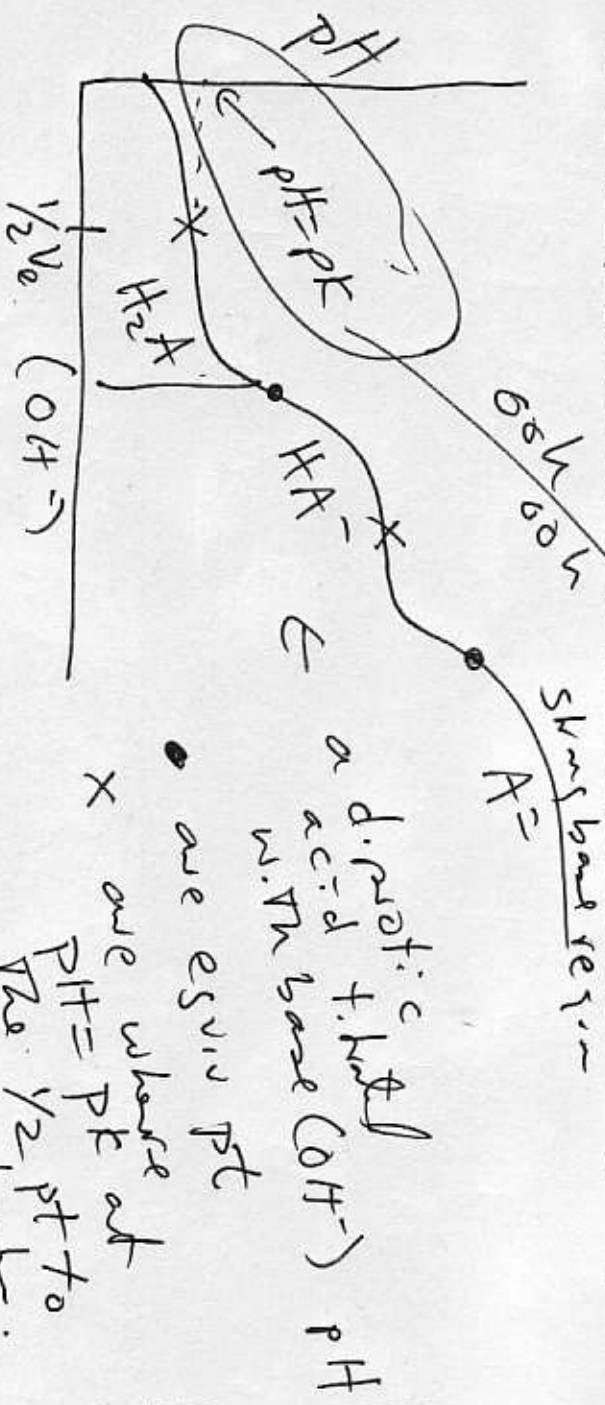 pH
pH=pK
ooh ooh
strong base region
H₂A
HA-
A=
½Ve (OH-)
← a diprotic
acid titrated
with base (OH-)
pH
• are equiv pt
x are where
pH = pK at
The ½ pt to